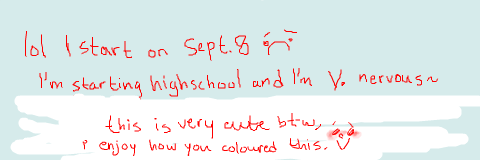 lol I start on Sept. 8
I'm starting highschool and I'm v. nervous~
this is very cute btw,
i enjoy how you coloured this.